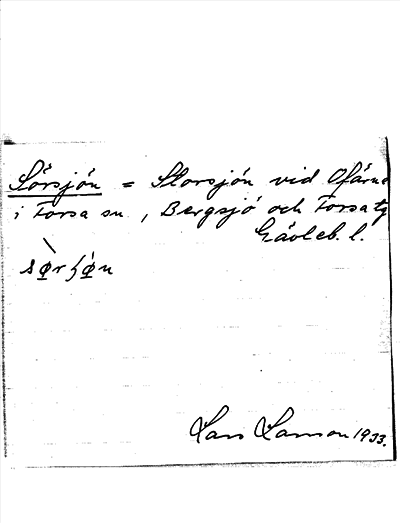 Sörsjön = Storsjön vid Ofärne
i Forsa sn, Bergsjö och Forsa tg
Gävleb. l.
sørʃøn
Lars Larsson 1933.